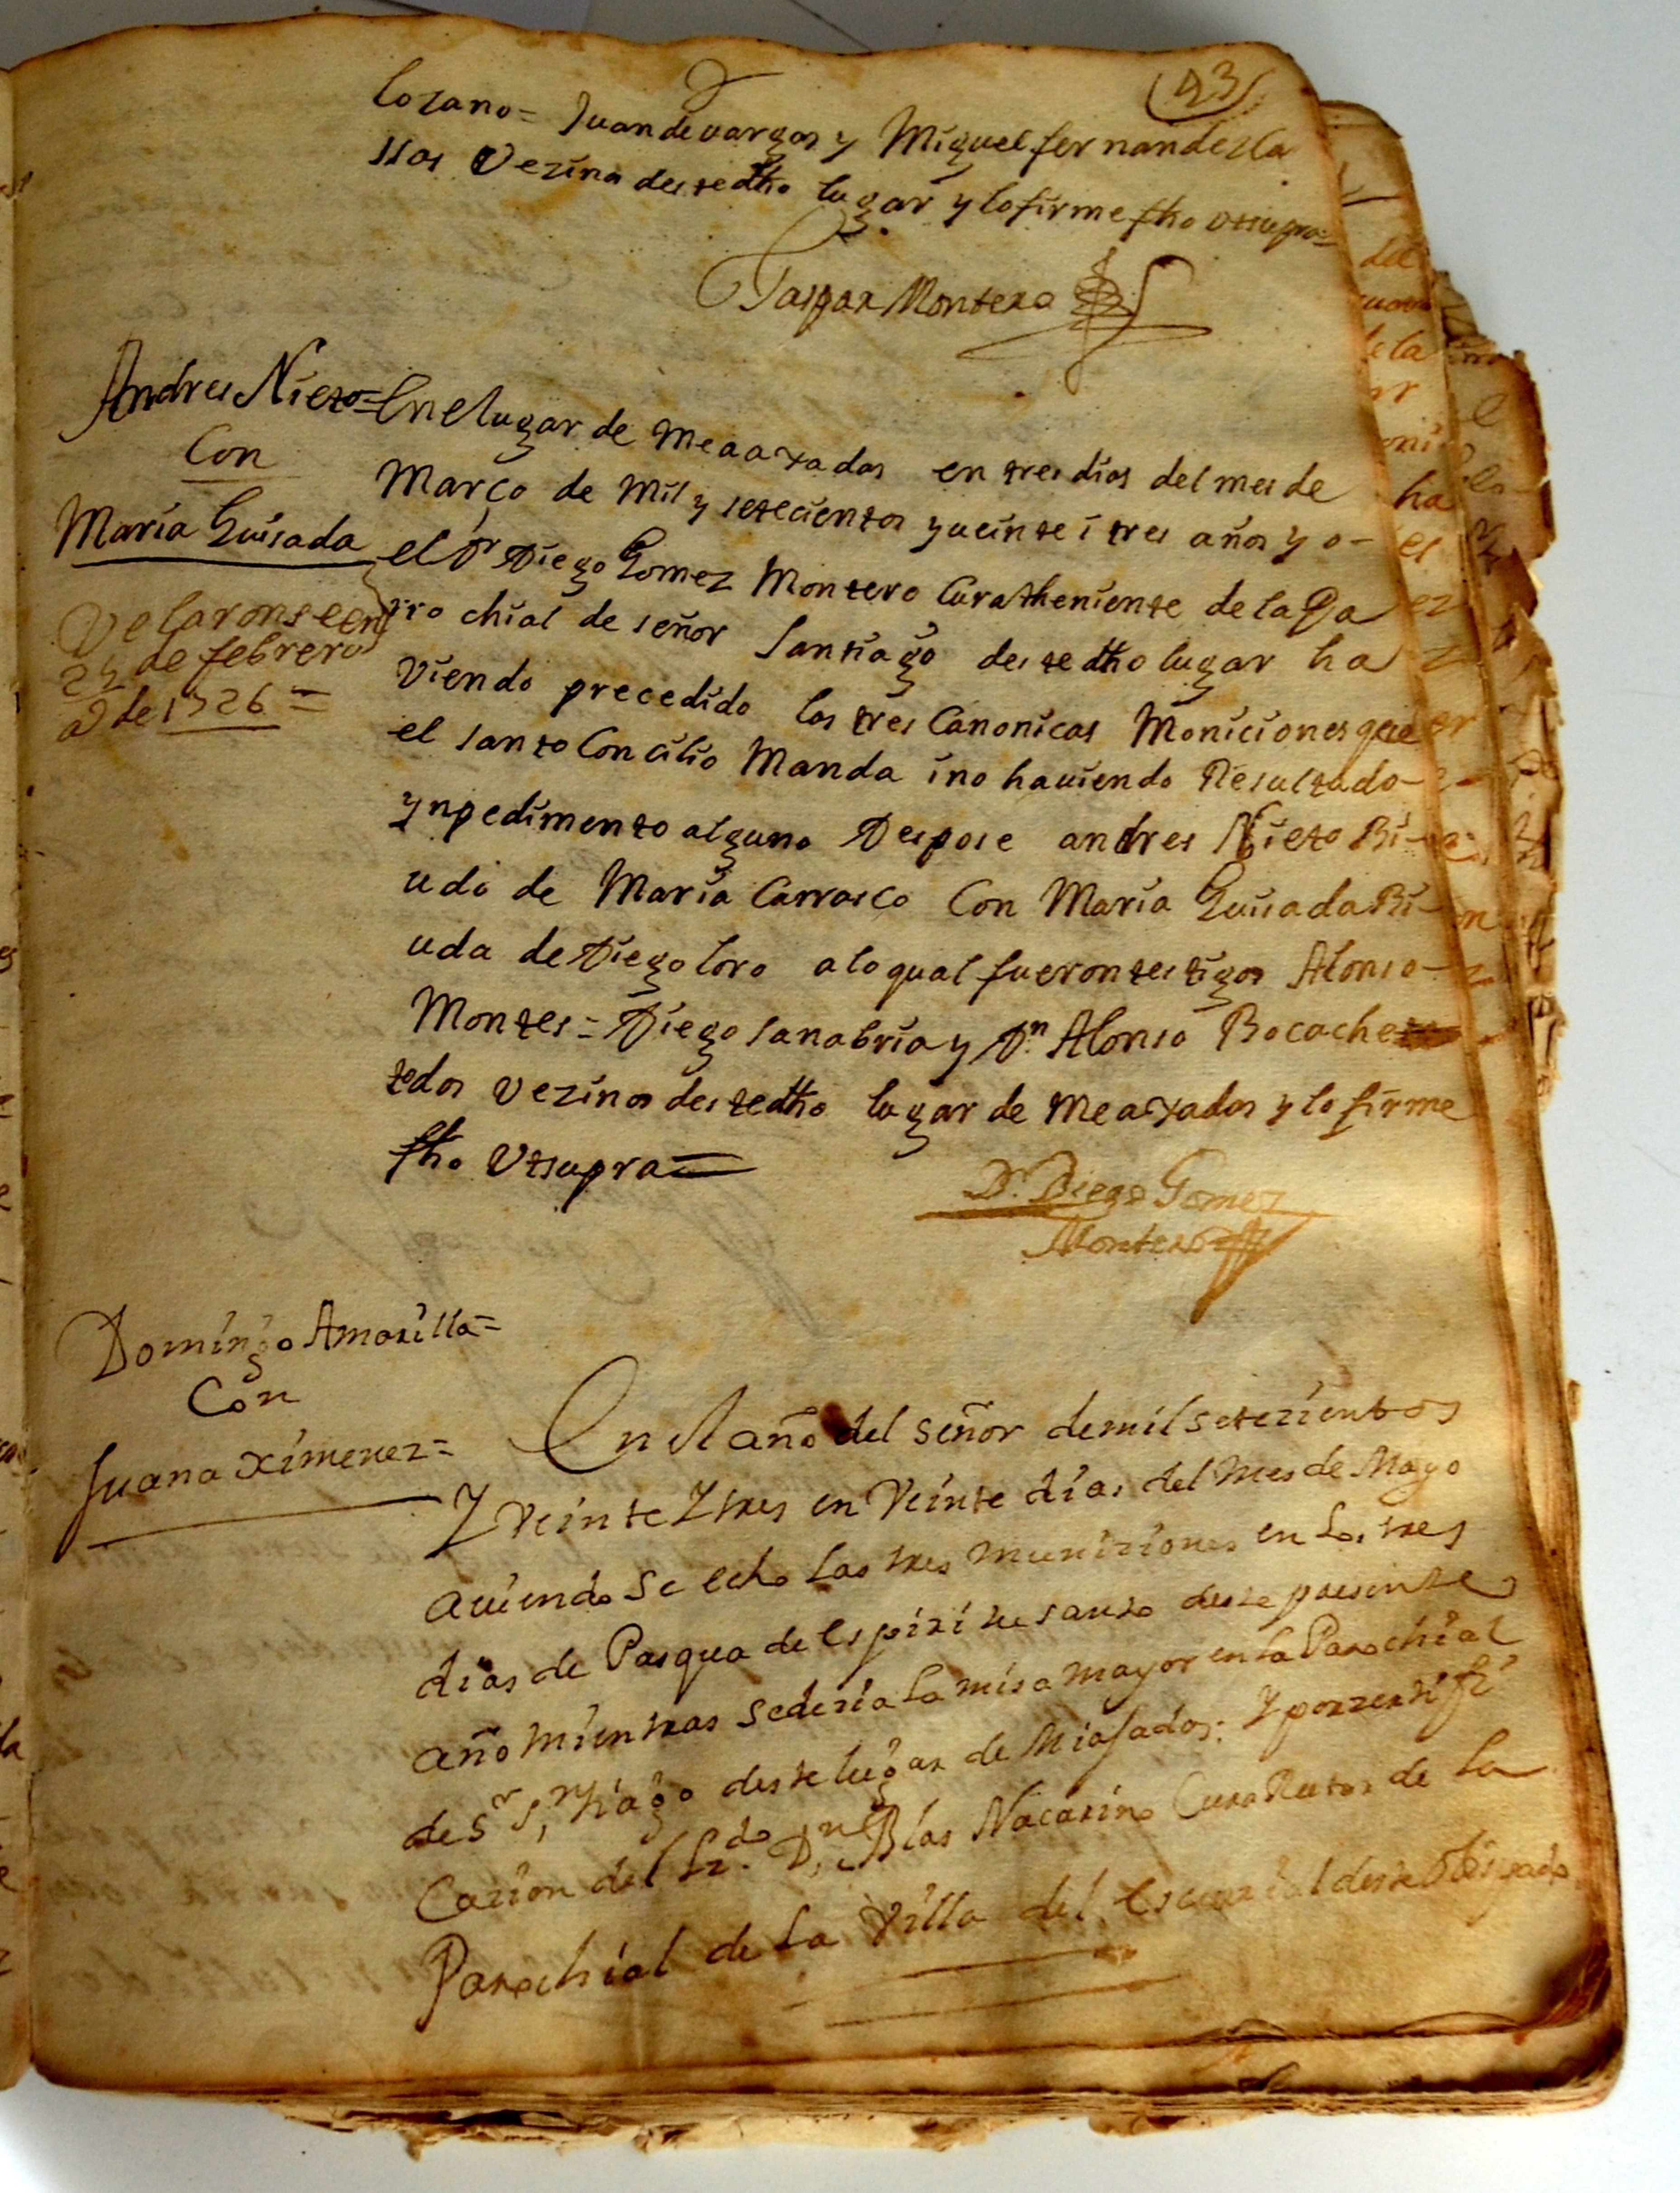 (43)
lozano = Juan de vargas y Miguel fernandez Ca
ssos Vezinos deste dho lugar y lo firme fho Utsupra =
Gaspar Montero
Andres Nieto =
Con
Maria Guisada
Velaronse en
24 de febrero
a de 1726 =
En el lugar de Meaaxadas en tres dias del mes de
Março de Mil y setecientos y veinte i tres años yo -
el Dr Diego Gomez Montero Cura theniente de la Pa
rrochial de señor Santiago deste dho lugar ha
Viendo precedido las tres Canonicas Moniciones que
el santo Concilio Manda i no haviendo Resultado -
ynpedimento alguno Despose andres Nieto Bi -
udo de Maria Carrasco Con Maria Guisada Bi -
uda de Diego loro a lo qual fueron testigos Alonso -
Montes = Diego sanabria y Dn Alonso Bocache
todos Vezinos deste dho lugar de Meaxadas y lo firme
fho Utsupra =
Dr. Diego Gomez
Montero
Domingo Amarilla =
Con
Juana Ximenez =
En el año del señor de mil setezientos
Y Veinte Y tres en Veinte dias del Mes de Mayo
aviendose echo las tres muniziones en los tres
dias de Pasqua de Espiritu santo deste presente
año mientras se dezia la misa mayor en la Parochial
de Sr Sntiago deste lugar de Miajadas: Y por zertifi
cazion del Lzdo. Dn Blas Nacarino Cura Retor de la
Parochial de la Villa del Escurial deste Obispado